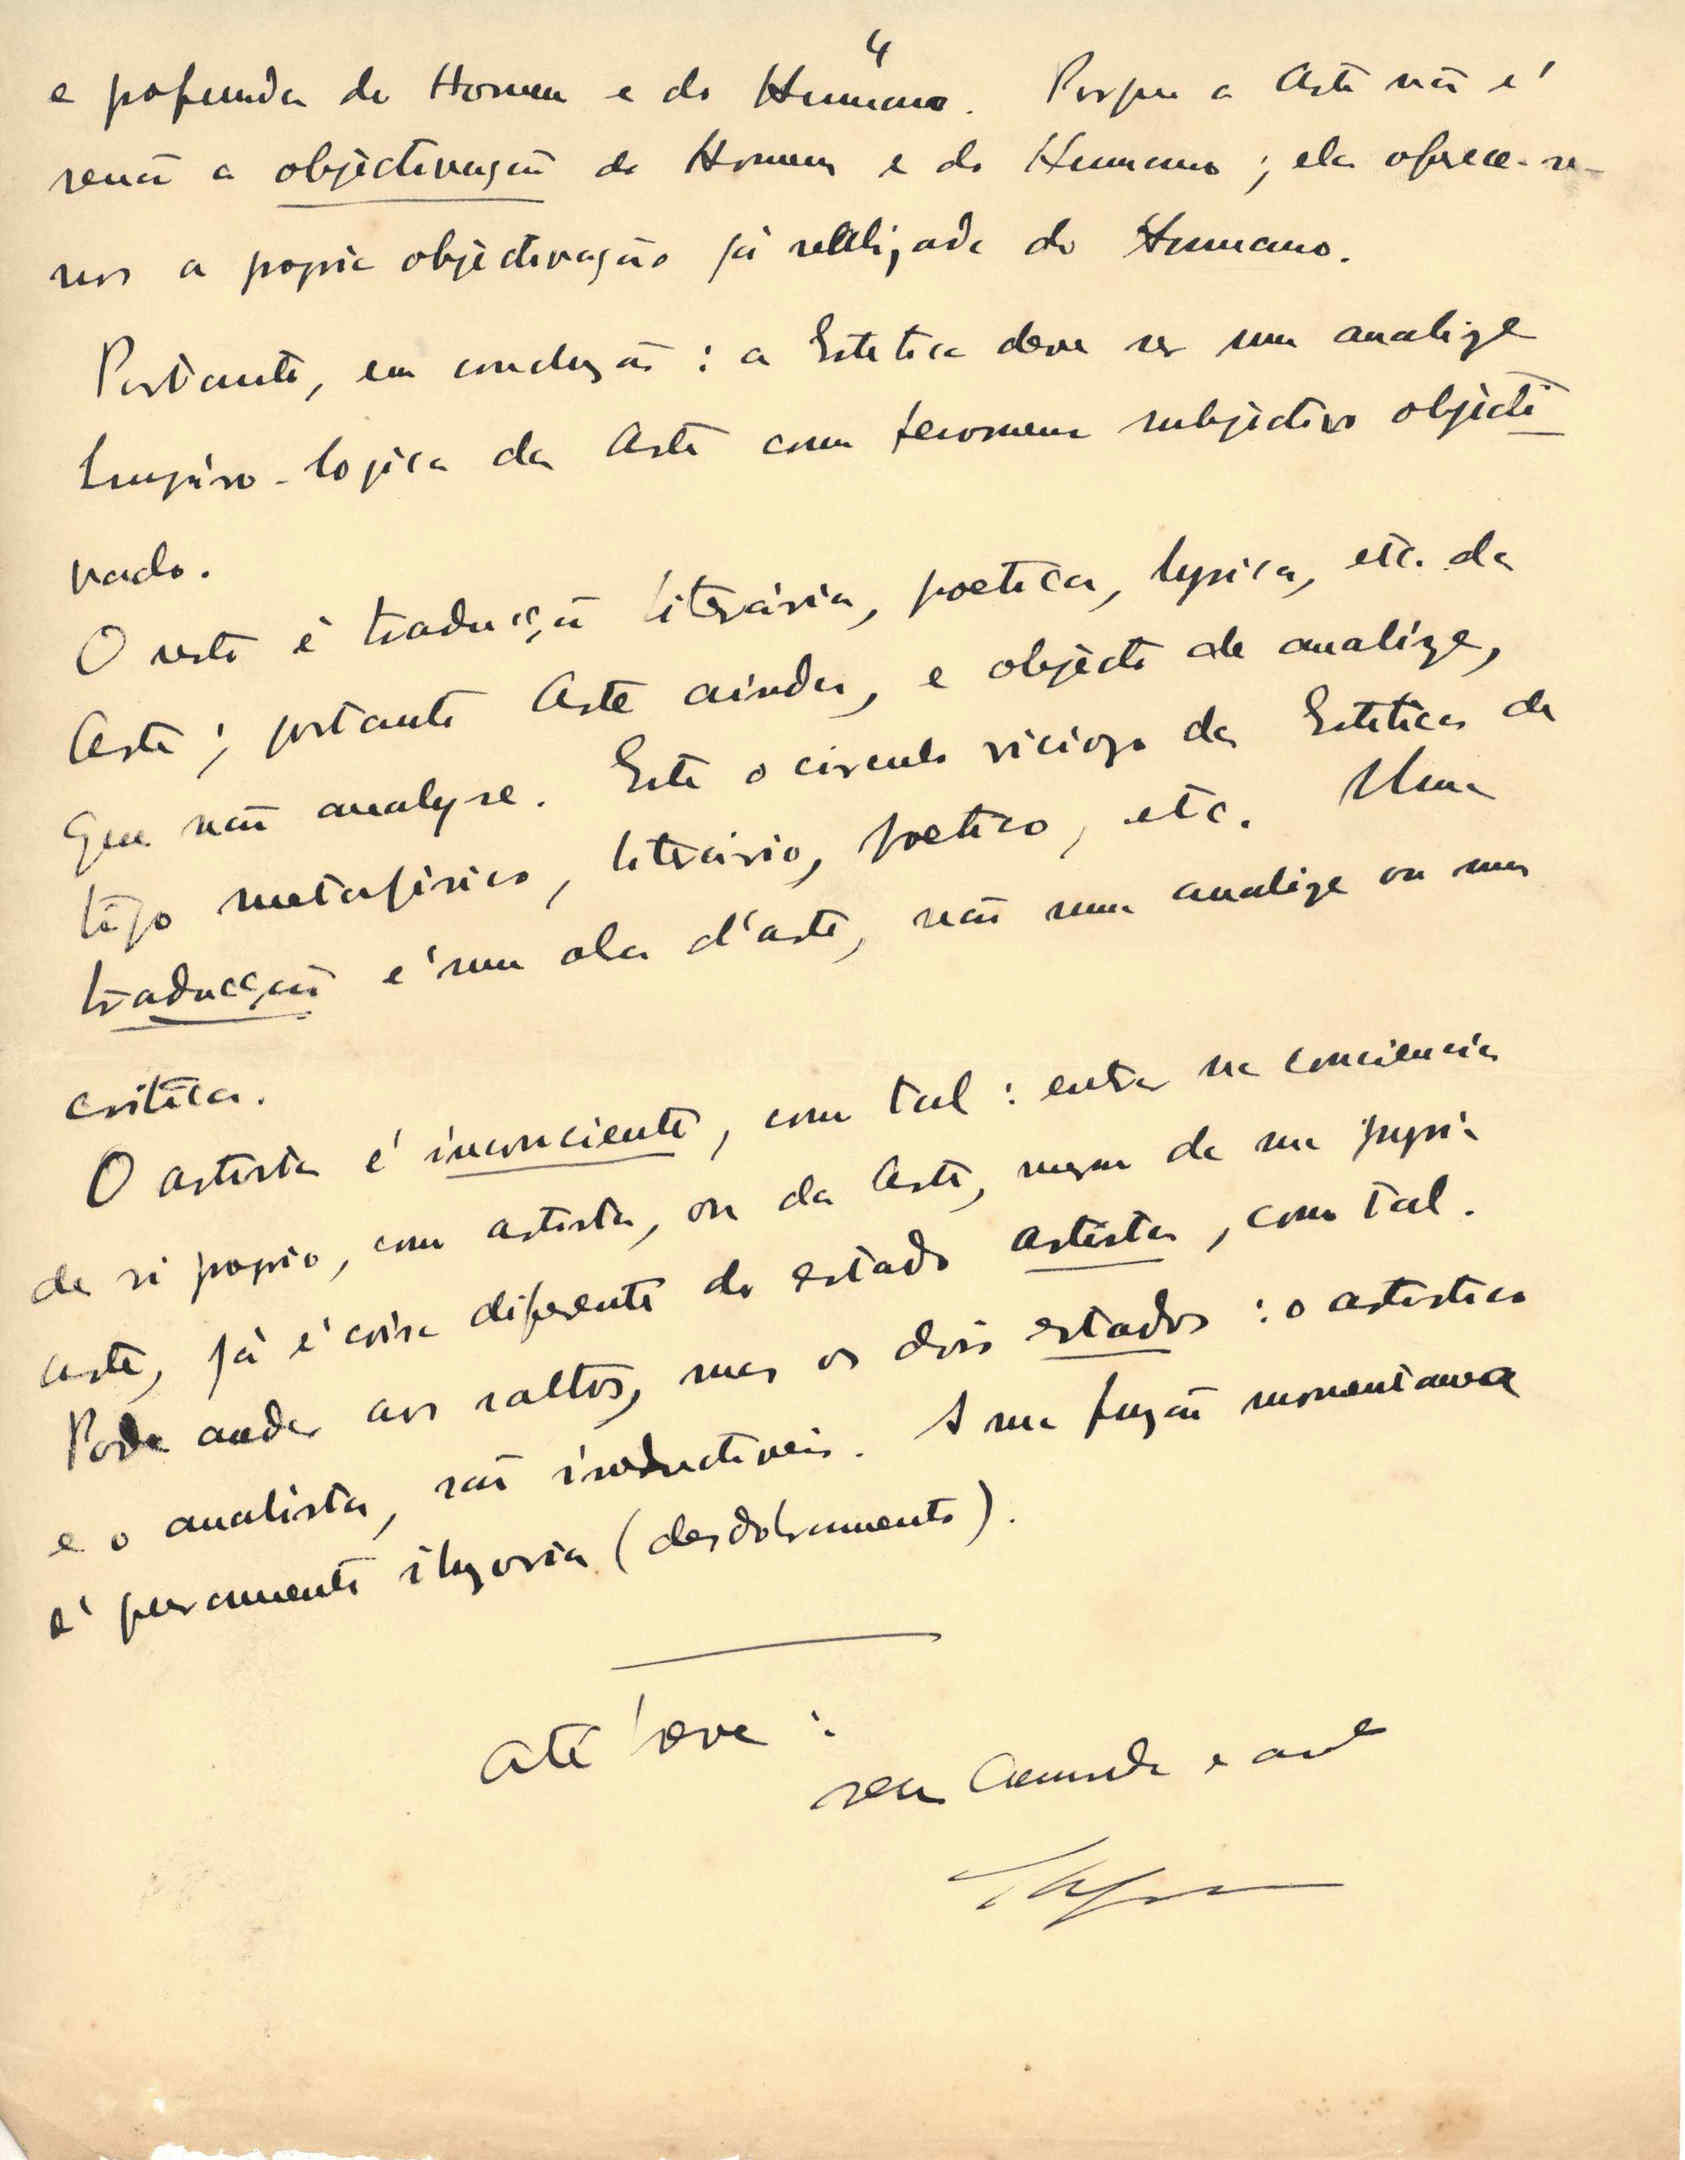 4
e profunda do Homem e do Humano. Porque a Arte não é
senão a objèctivação do Homem e do Humano; ela oferece-se-
nos a propria objèctivação já realizada do Humano.
Portanto, em concluzão: a Estetica deve ser uma analize
empiro-logica da Arte como fenomeno subjèctivo objècti
vado.
O resto é traducção literária, poetica, lyrica, etc. da
Arte; portanto Arte ainda, e objècto de analize,
que não analyse. Este o circulo viciozo da Estetica de
tipo metafisico, literário, poetico, etc. Uma
traducção é uma obra d'arte, não uma analize ou uma
critica.
O artista é inconciente, como tal: entrar na conciencia
de si proprio, como artista, ou da Arte, mesmo da sua propria
arte, já é coisa diferente do estado artista, como tal.
Pode andar aos saltos, mas os dois estados: o artistico
e o analista, são irreductiveis. A sua fuzão momentanea
é puramente iluzoria (desdobramento).
Até breve:
seu Camarada e